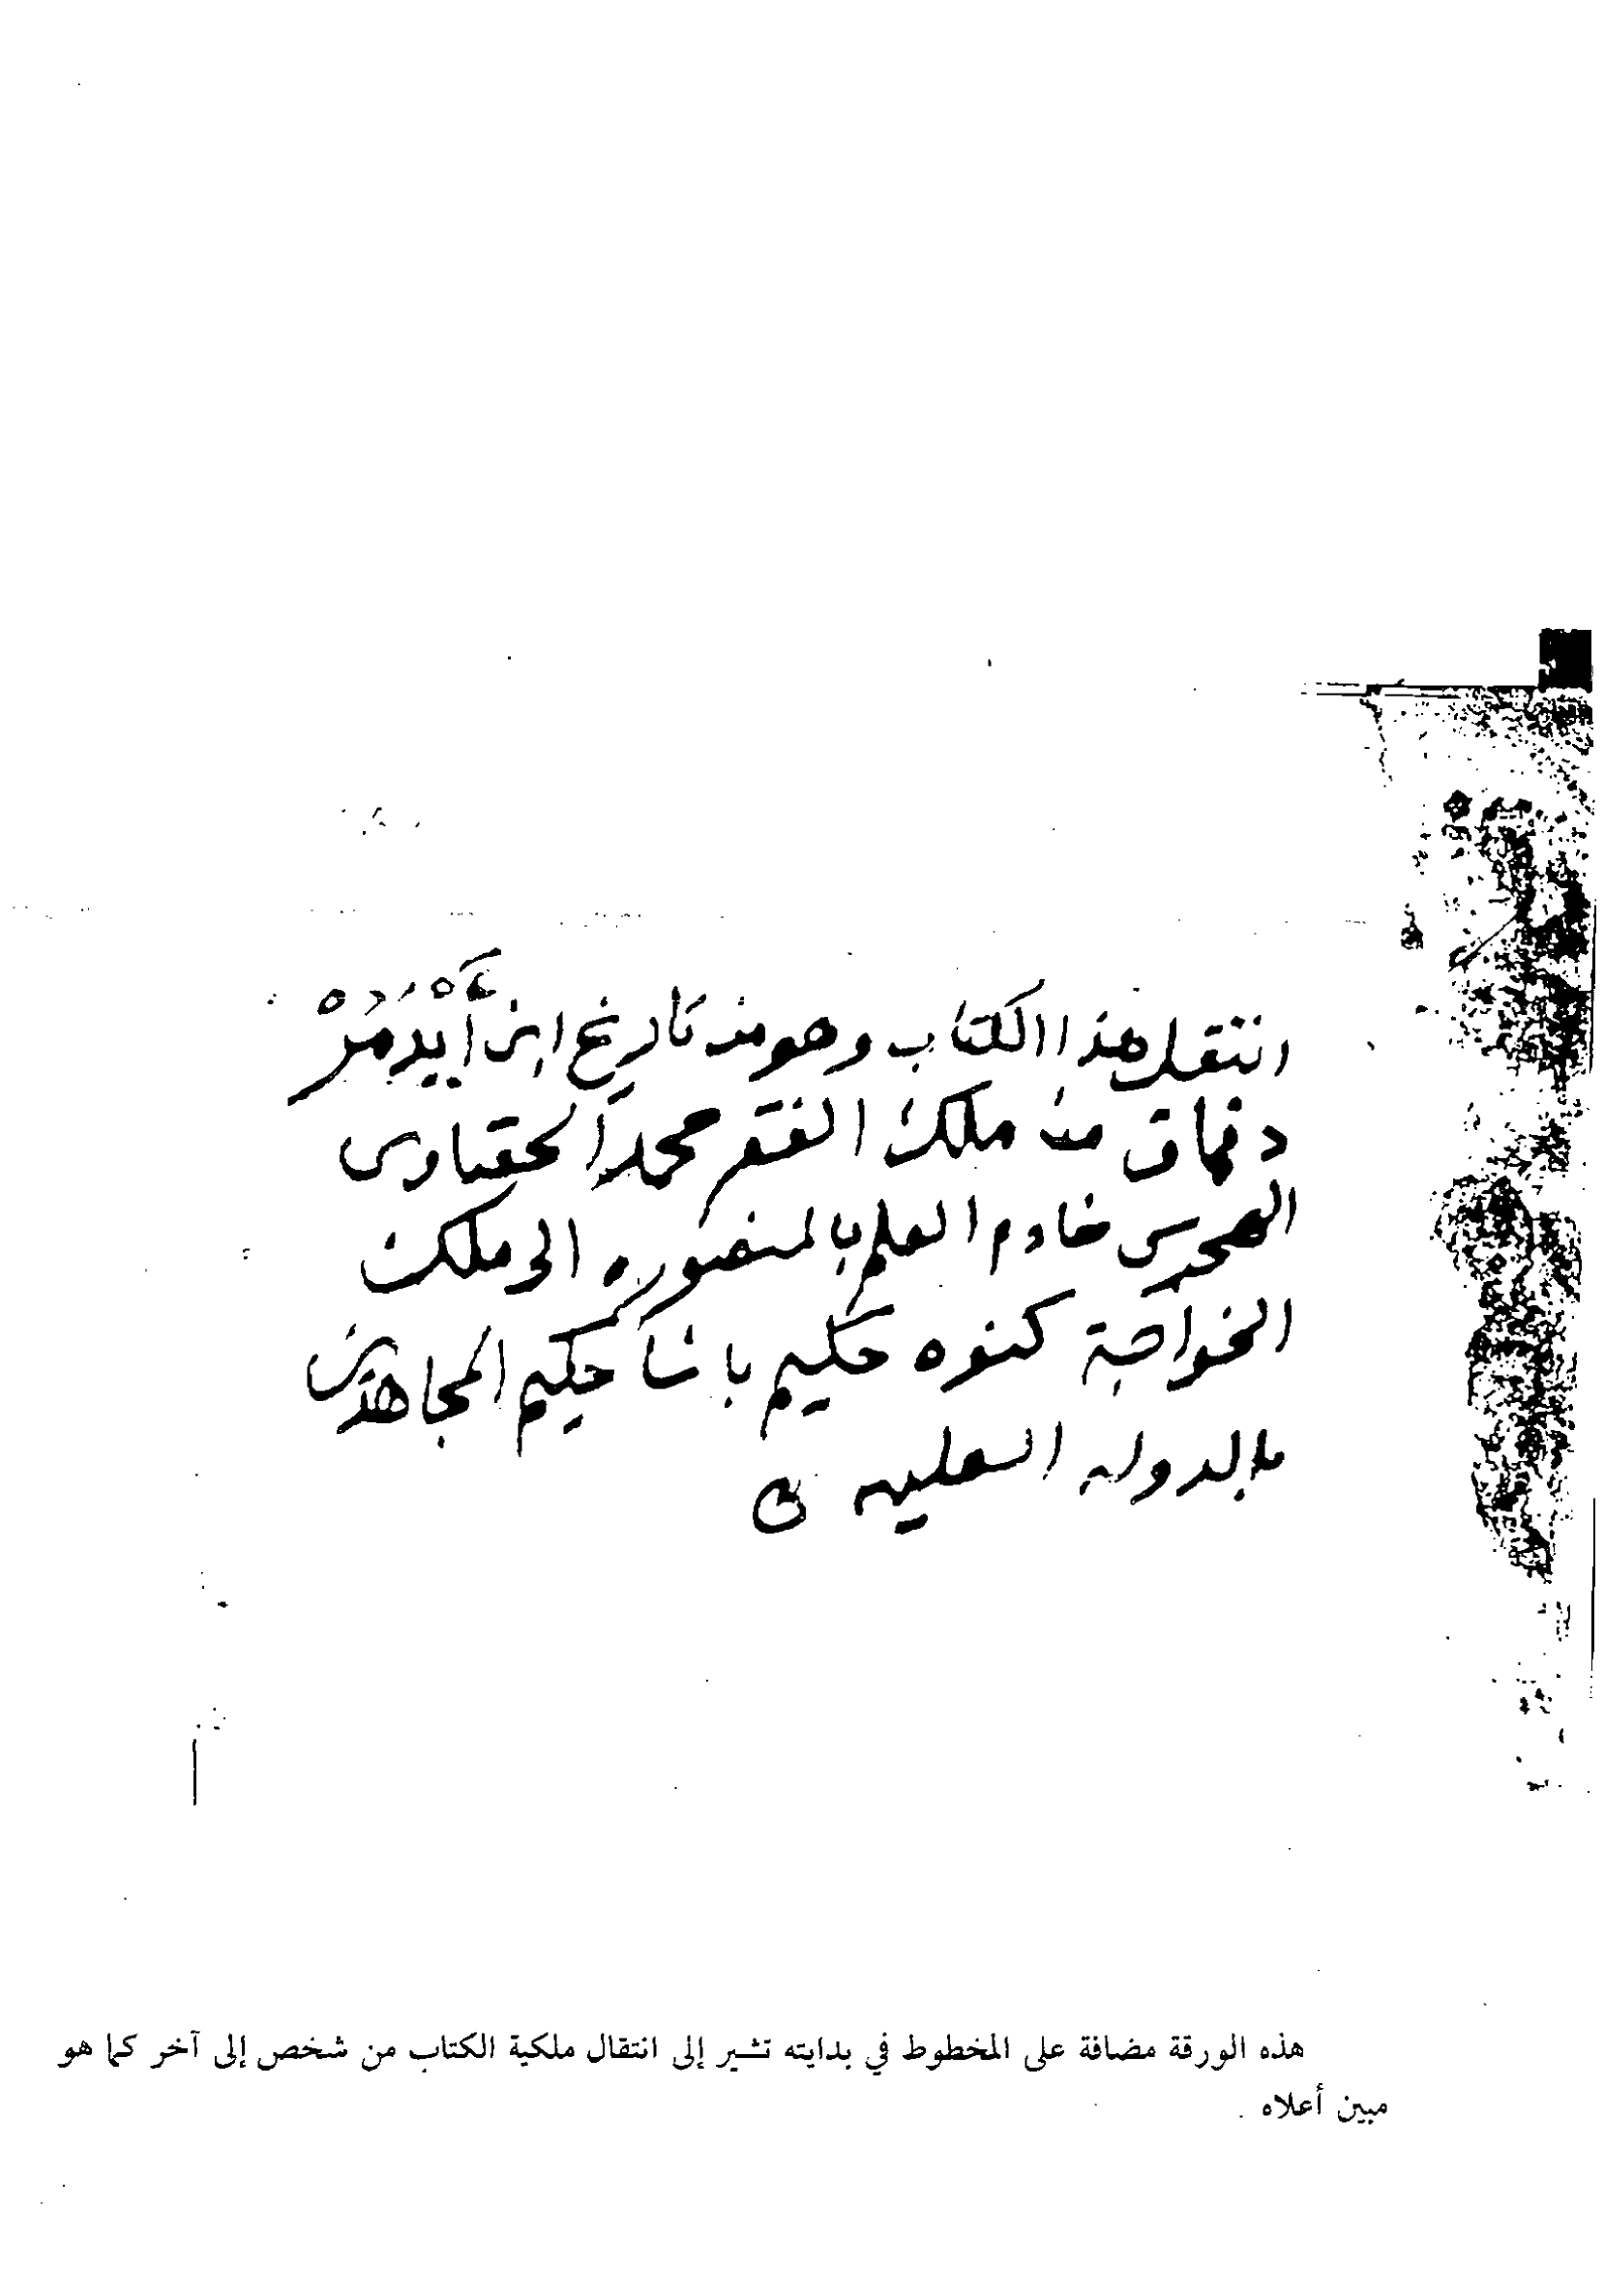 انتقل هذا الكتاب وهو من تاريخ ابن أَيْدَمُرْ
دقماق من ملك الفقير محمد الحفناوى
خادم العلم بالمنصوره الى ملك
الخواجة كنوه حكيم باشا حكيم المجاهدين
بالدوله العليه
هذه الورقة مضافة على المخطوط في بدايته تشير إلى انتقال ملكية الكتاب من شخص إلى آخر كما هو
مبين أعلاه .